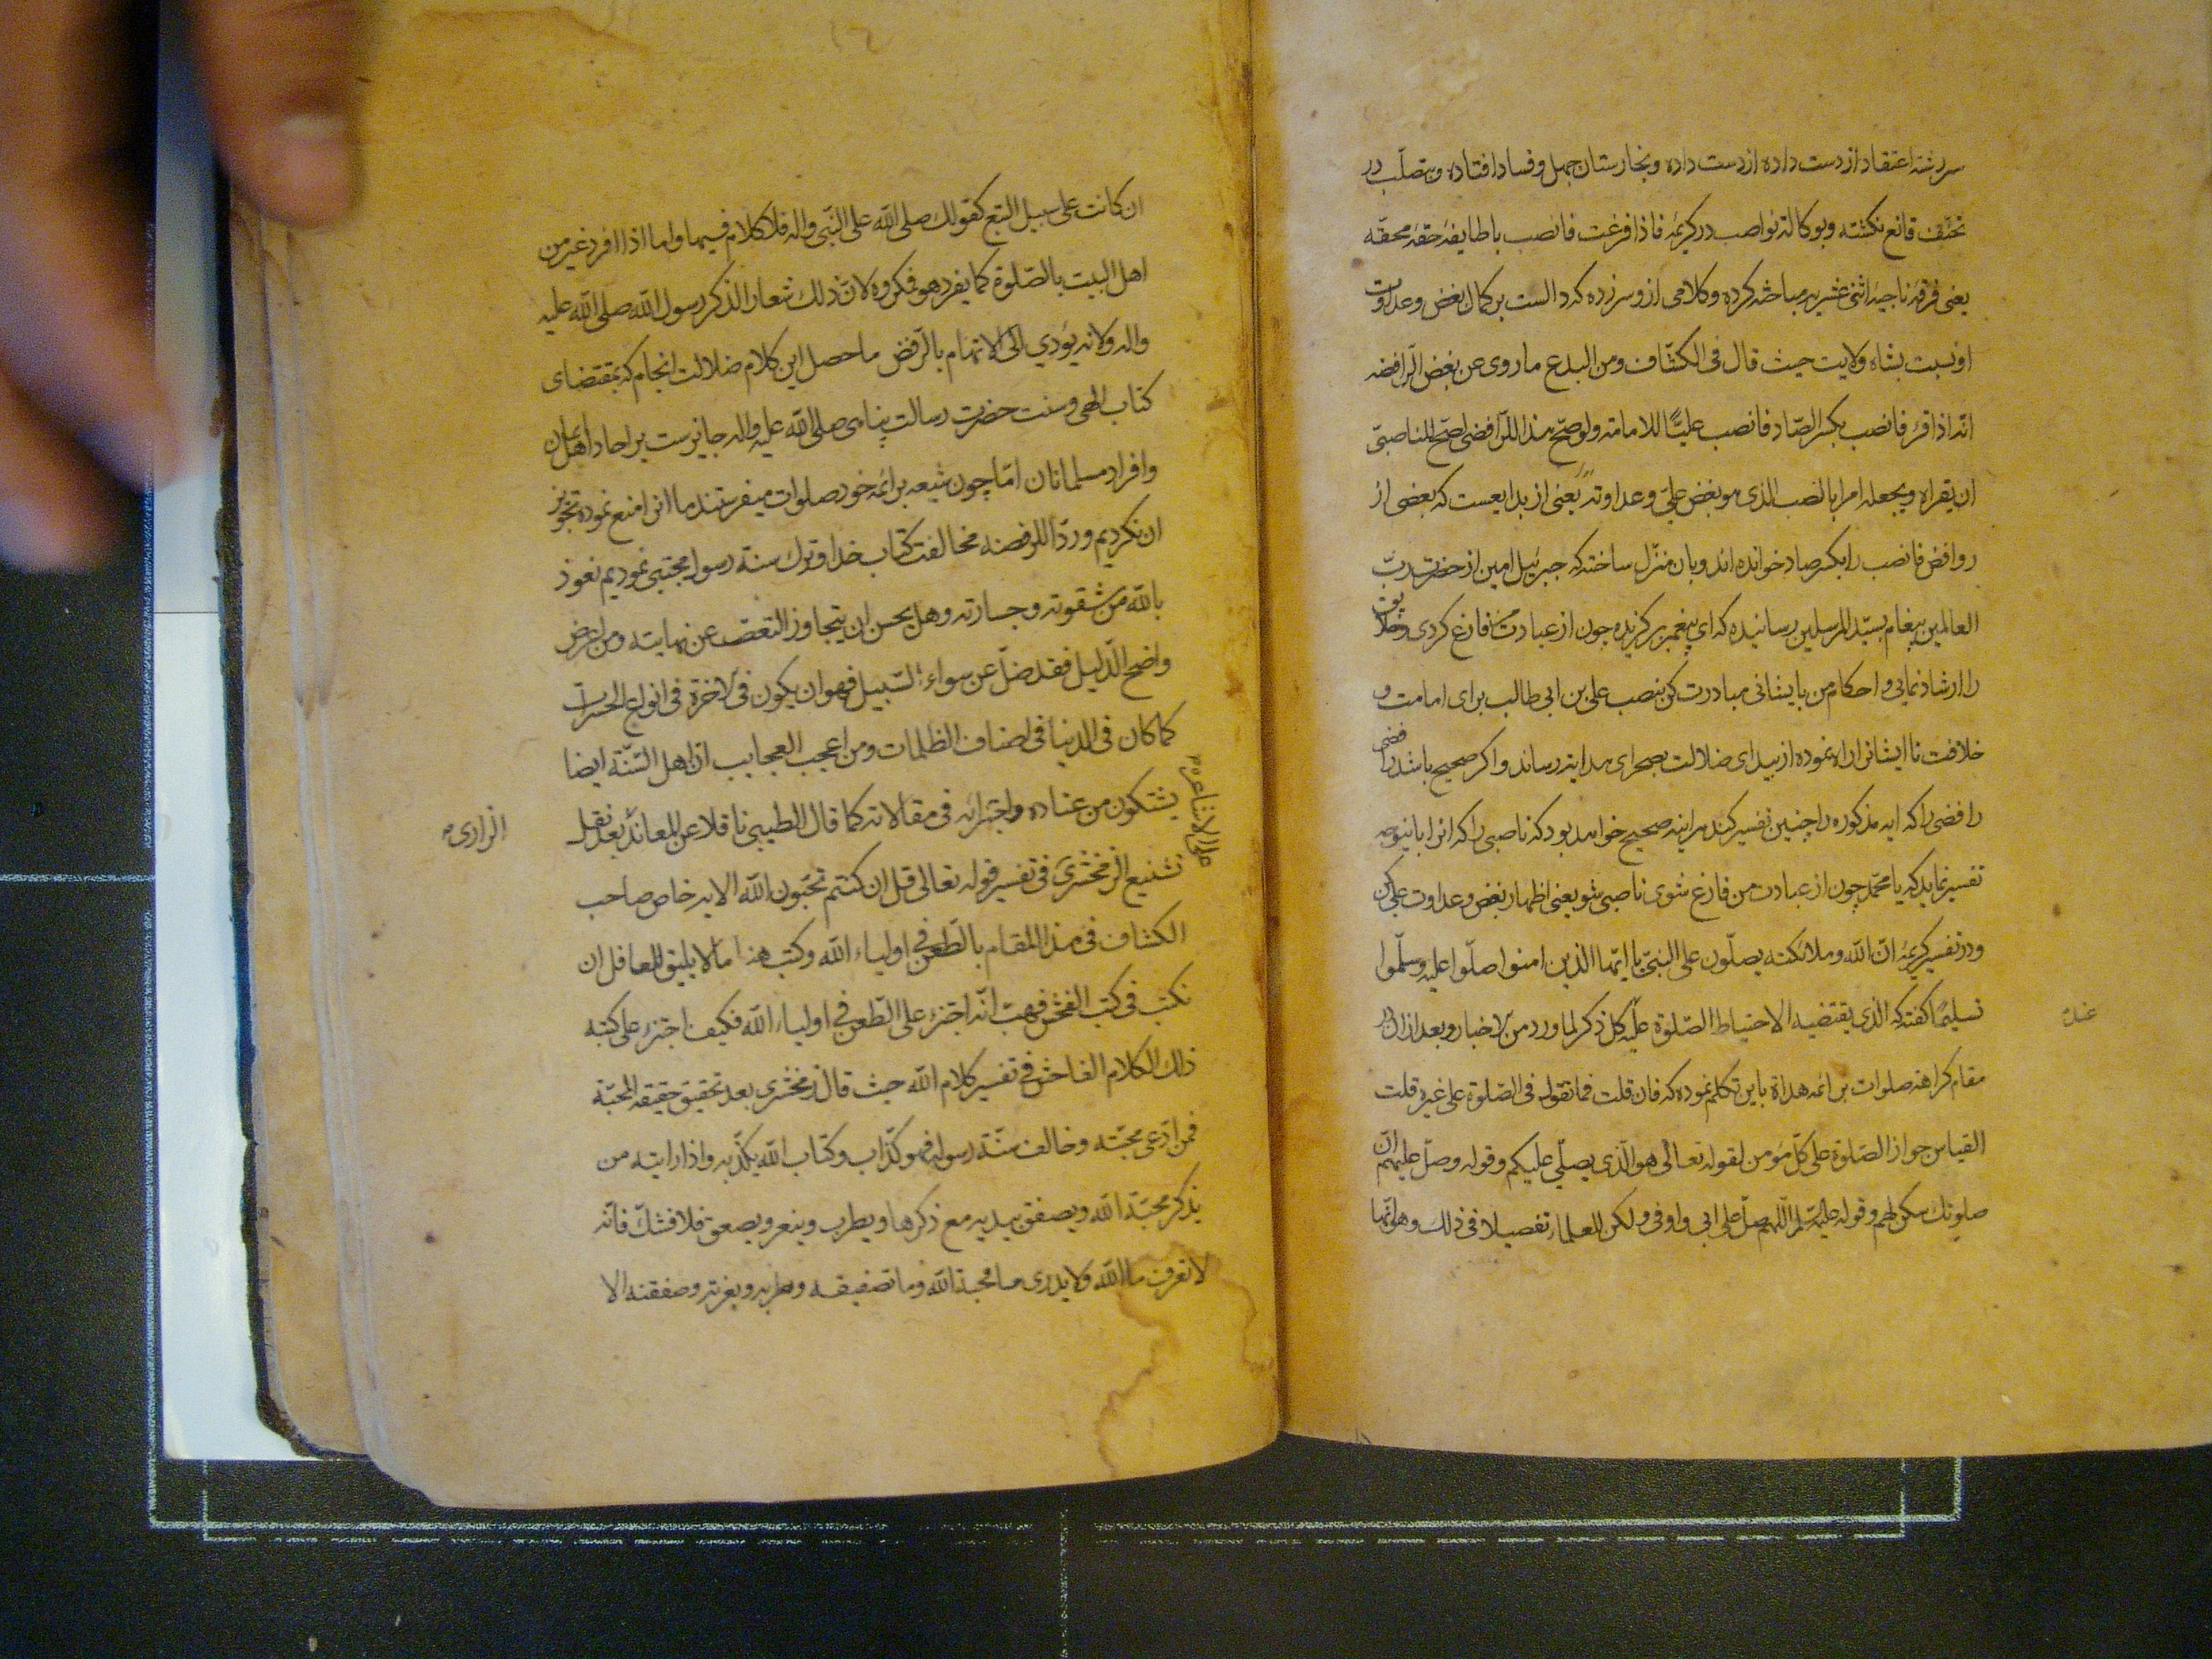 سررشته اعتقاد از دست داده از دست داده و بخارستان جهل و فساد افتاده و بتصلب در
تحنف قانع نکشته و بوکالة نواصب در کریمه فاذا فرغت فانصب با طایفهٔ حقهٔ محقه
یعنی فرقهٔ ناجیهٔ اثنی عشریه مباحثه کرده و کلامی ازو سر زده که دالست بر کمال بغض و عداوت
او نسبت بشاه ولایت حیث قال فی الکشاف ومن البدع ما روی عن بعض الرافضه
انه اذا قرء فانصب بکسر الصاد فانصب علیّاً للامامة ولو صح هذا للرافضی لصح للناصبی
ان یقراه ویجعله امرا بالنصب الذی هو بغض علی وعداوته یعنی از بدایعست که بعضی از
روافض فانصب را بکسر صاد خوانده اند و بان منزل ساخته که جبرئیل امین از حضرت رب
العالمین پیغام بسید المرسلین رسانیده که ای پیغمبر برکزیده چون از عبادت فارغ کردی وخلایق
را ارشاد نمایی و احکام من بایشانی مبادرت کن بنصب علی بن ابی طالب برای امامت و
خلافت تا ایشانرا راه نموده از بیدای ضلالت بصحرای هدایة رساند و اکر صحیح باشد
رافضی را که ایه مذکوره را چنین تفسیر کند هراینه صحیح خواهد بود که ناصبی را که انرا باینوجه
تفسیر نماید که یا محمد چون از عبادت من فارغ شوی ناصبی شو یعنی اظهار بغض و عداوت علی کن
و در تفسیر کریمهٔ ان الله وملائکته یصلّون علی النبی یا ایها الذین امنوا صلّوا علیه وسلّموا
تسلیما کفته که الذی یقتضیه الاحتیاط الصلوة علیه کل ذکر لما ورد من الاخبار و بعد ازان در
عند
مقام کراهة صلوات بر ائمه هداة باین تکلم نموده که فان قلت فما تقول فی الصلوة علی غیره قلت
القیاس جواز الصلوة علی کلّ مؤمن لقوله تعالی هو الذی یصلّی علیکم وقوله وصلّ علیهم انّ
صلوتک سکن لهم وقوله علیه السلم اللهم صلّ علی ابی اوفی ولکن للعلماء تفصیلا فی ذلک وهو انها
ان کانت علی سبیل التبع کقولک صلی الله علی النبی واله فلا کلام فیها واما اذا افرد غیره من
اهل البیت بالصلوة کما یفرد هو فمکروه لان ذلک شعار الذکر رسول الله صلی الله علیه
واله ولانه یؤدی الی الاتهام بالرفض ما حصل این کلام ضلالت انجام که بمقتضای
کتاب الهی و سنت حضرت رسالت پناهی صلی الله علیه واله جایزست بر احاد اهل
و افراد مسلمانان اما چون شیعه بر ائمه خود صلوات میفرستند ما انرا منع نموده تجویز
ان نکردیم و ردا للرفضه مخالفت کتاب خدا و ترک سنة رسول مجتبی نمودیم نعوذ
بالله من شقوته وجسارته وهل یحسن ان یتجاوز التعصب عن نهایته ومن اعرض
واضح الدلیل فقد ضلّ عن سواء السبیل فهو ان یکون فی الاخرة فی انواع الحسرات
کما کان فی الدنیا فی اصناف الظلمات ومن اعجب العجایب ان اهل السنّة ایضا
یشتکون من عناده واجترائه فی مقالاته کما قال الطیبی ناقلا عن المعاند بعد نقل
الرازی
تشنیع الزمخشری فی تفسیر قوله تعالی قل ان کنتم تحبون الله الایه خاص صاحب
الکشاف فی هذا المقام بالطعن فی اولیاء الله وکتب هنا ما لا یلیق للعاقل ان
نکتب فی کتب الفحش فهب انه اجترء علی الطعن فی اولیاء الله فکیف اجترء علی کتبه
ذلک الکلام الفاحش فی تفسیر کلام الله حیث قال زمخشری بعد تحقیق حقیقه المحبّة
فمن ادّعی محبّته وخالف سنّة رسوله فهو کذّاب وکتاب الله یکذّبه واذا رایته من
یذکر محبّة الله ویصفق بیدیه مع ذکرها ویطرب وینعر ویصعق فلا فشکّ فانه
لا تعرف ما الله ولا یدری ما محبة الله وما تصفیقه وطربه ونعرته وصفقته الا